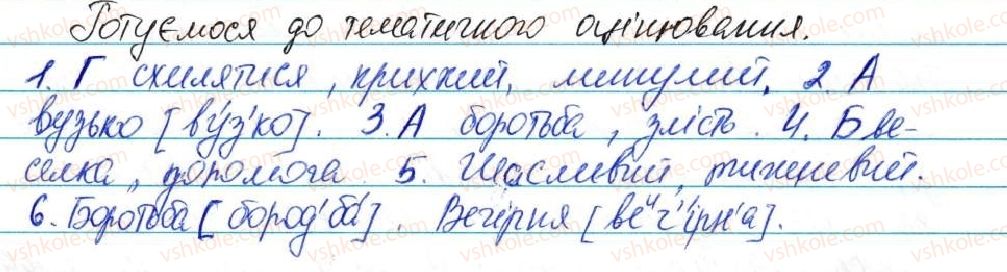 Готуємося до тематичного оцінювання.
1. Г схилятися, крихкий, минулий. 2. А
вузько [ву́з'ко]. 3. А боротьба, злість. 4. Б ве-
селка, допомога 5. Щасливий, тижневий.
6. Боротьба [бород'ба́]. Вечірня [веич'ірн'а].